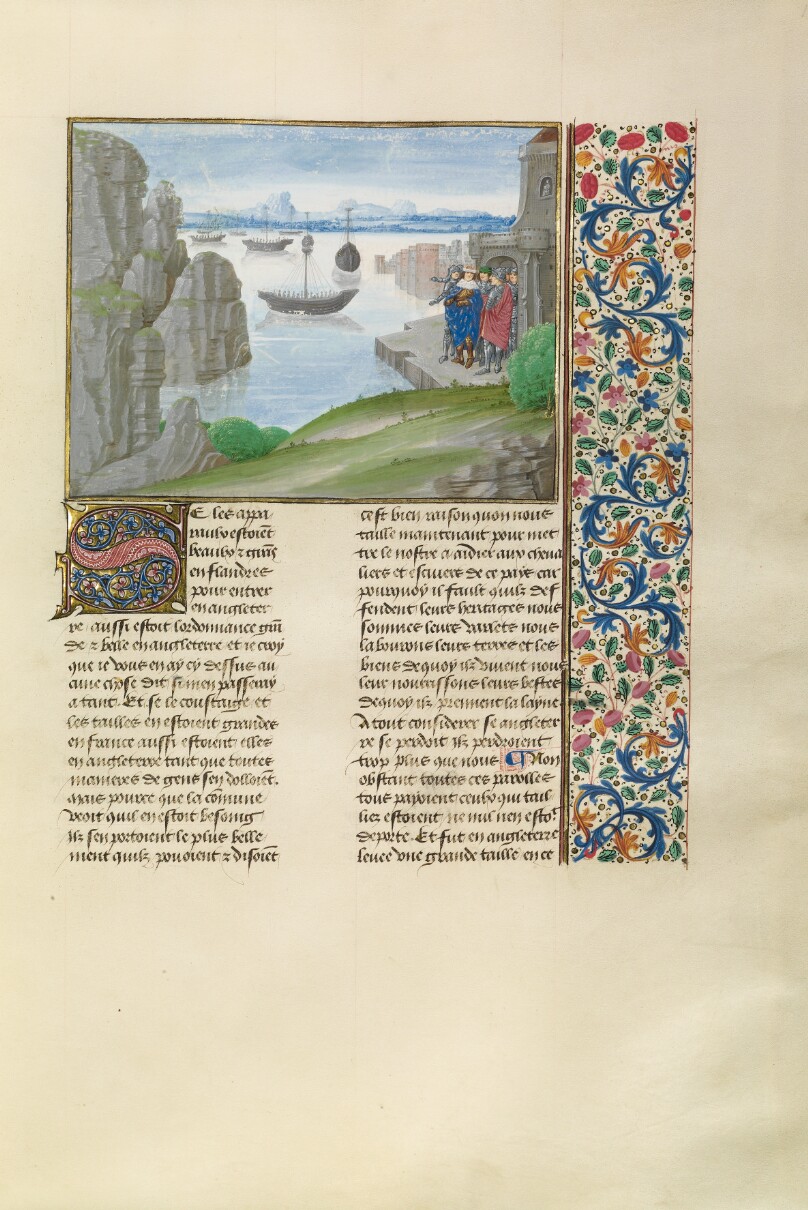 SE les appa
raulx estoiēt
beaulx et grās
en flandres
pour entrer
en angleter
re aussi estoit lordonnance grā
de et belle en angleterre et ie croy
que ie vous en ay cy dessus au
cune chose dit si men passeray
a tant. Et se le coustaige et
les tailles en estoient grandes
en france aussi estoient elles
en angleterre tant que toutes
manieres de gens sen dolloiēt.
Mais pource que la cōmune
veoit quil en estoit besoing
ilz sen portoient le plus belle
ment quilz pouoient et disoiēt
cest bien raison quon nous
taille maintenant pour met
tre le nostre a aidier aux cheua
liers et escuiers de ce pays car
pourquoy il fault quilz def
fendent leurs heritages nous
sommes leurs varlets nous
labourons leurs terres et les
biens dequoy ilz viuent nous
leur nourissons leurs bestes
dequoy ilz prennent la layne
A tout considerer se angleter
re se perdoit ilz perdroient
trop plus que nous ¶ Non
obstant toutes ces parolles
tous paioient ceulx qui tail
liez estoient ne nul nen estoit
deporte. Et fut en angleterre
leuee vne grande taille en ce